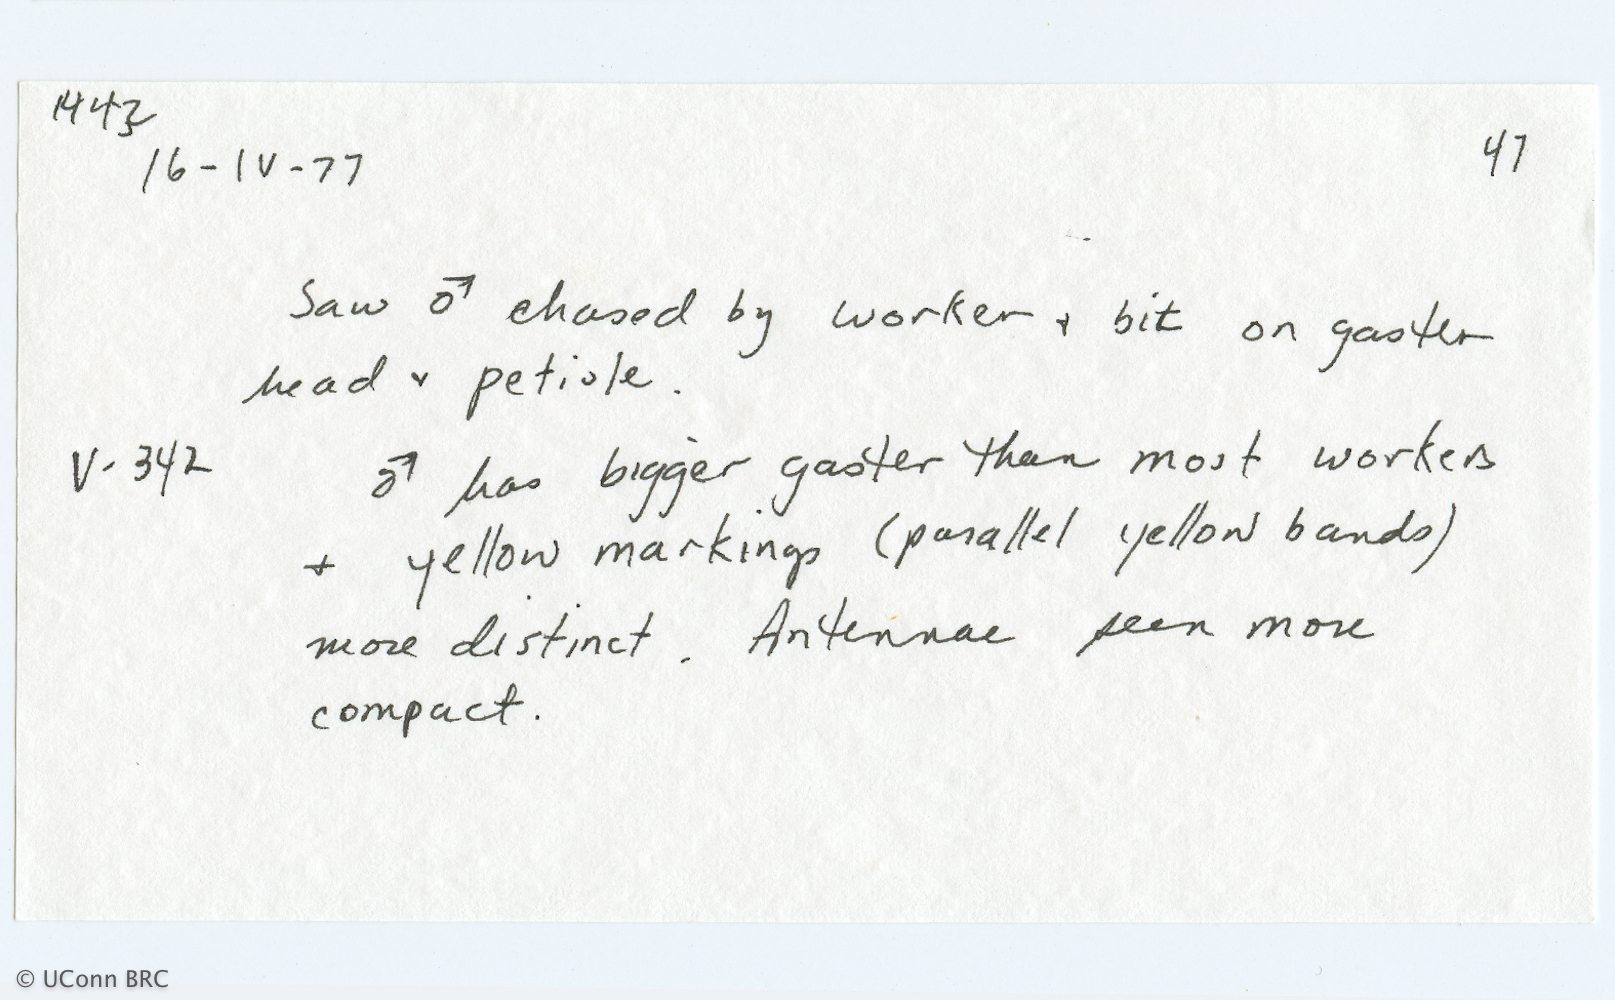 1443
16-IV-77
47
Saw ♂ chased by worker + bit on gaster
head + petiole.
V-342 ♂ has bigger gaster than most workers
+ yellow markings (parallel yellow bands)
more distinct. Antennae seem more
compact.
© UConn BRC